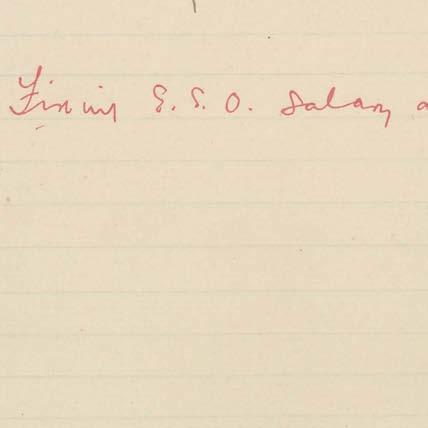 Fixing S.S.O. Salary a